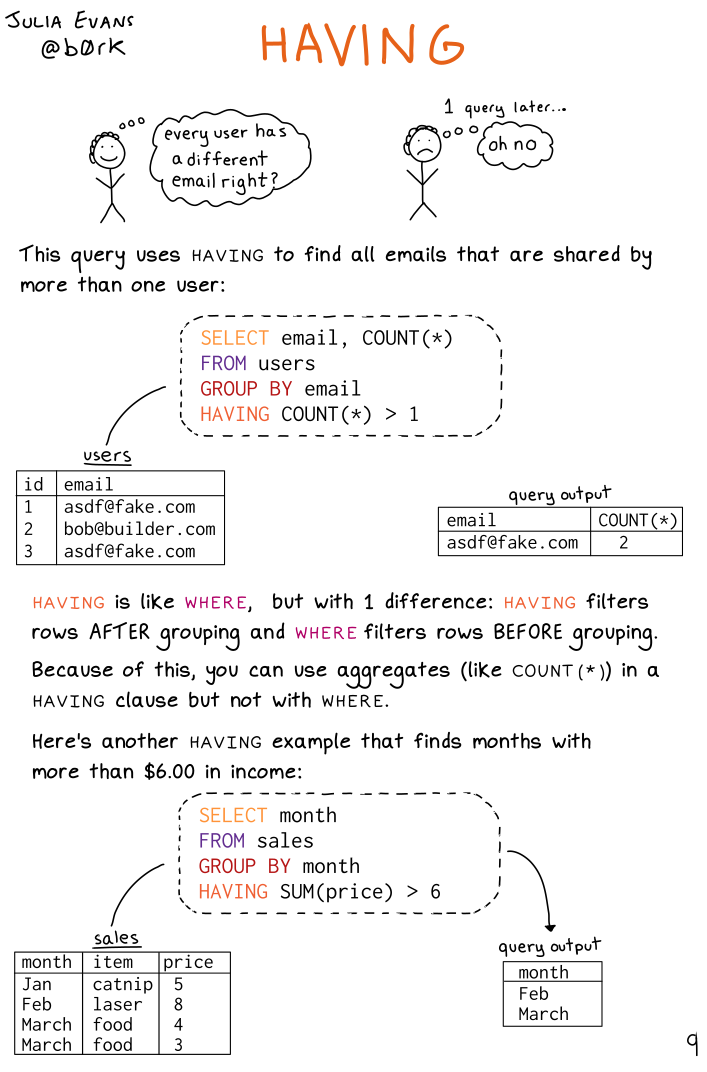 JULIA EVANS
@b0rk
HAVING
every user has
a different
email right?
1 query later...
oh no
This query uses HAVING to find all emails that are shared by
more than one user:
SELECT email, COUNT(*)
FROM users
GROUP BY email
HAVING COUNT(*) > 1
users
id email
1 asdf@fake.com
2 bob@builder.com
3 asdf@fake.com
query output
email COUNT(*)
asdf@fake.com 2
HAVING is like WHERE, but with 1 difference: HAVING filters
rows AFTER grouping and WHERE filters rows BEFORE grouping.
Because of this, you can use aggregates (like COUNT(*)) in a
HAVING clause but not with WHERE.
Here's another HAVING example that finds months with
more than $6.00 in income:
SELECT month
FROM sales
GROUP BY month
HAVING SUM(price) > 6
sales
month item price
Jan catnip 5
Feb laser 8
March food 4
March food 3
query output
month
Feb
March
9